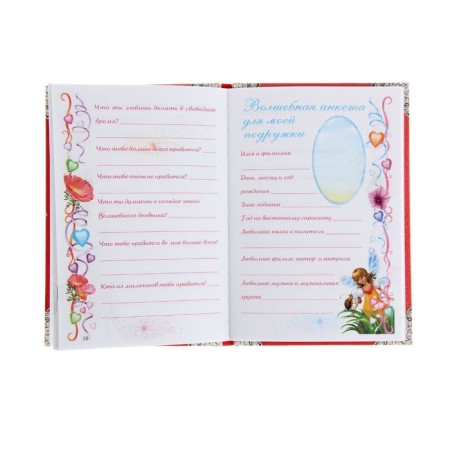 Что ты любишь делать в свободное
время?
Что тебе больше всего нравится?
Что тебе очень не нравится?
Что ты думаешь о хозяйке этого
Волшебного дневника?
Что тебе нравится во мне больше всего?
Кто из мальчиков тебе нравится?
Волшебная анкета
для моей
подружки
Имя и фамилия
День, месяц и год
рождения
Знак зодиака
Год по восточному гороскопу
Любимая книга и писатель
Любимые фильм, актер и актриса
Любимые музыка и музыкальная
группа